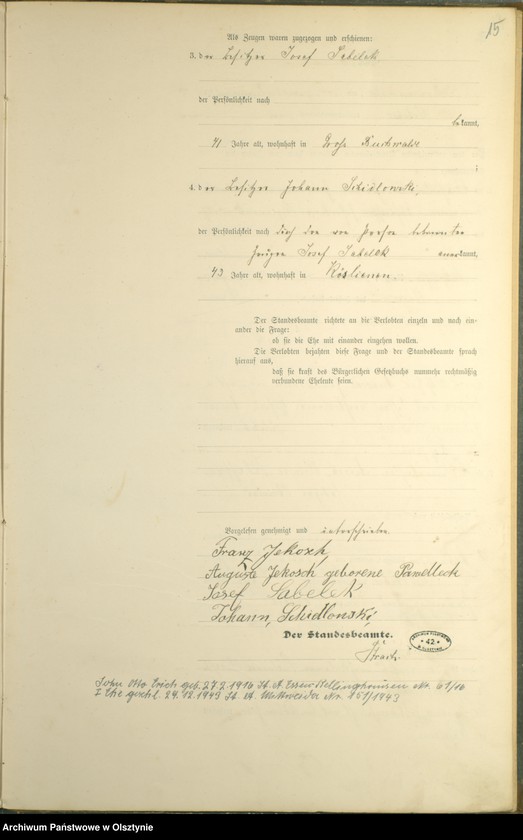 15
Als Zeugen waren zugezogen und erschienen:
3. der Besitzer Josef Sabelek
der Persönlichkeit nach
bekannt,
41 Jahre alt, wohnhaft in Groß Buchwalde
;
4. der Besitzer Johann Schidlowski,
der Persönlichkeit nach durch den von Person bekannten
Zeugen Josef Sabelek anerkannt,
43 Jahre alt, wohnhaft in Köslienen.
Der Standesbeamte richtete an die Verlobten einzeln und nach ein-
ander die Frage:
ob sie die Ehe mit einander eingehen wollen.
Die Verlobten bejahten diese Frage und der Standesbeamte sprach
hierauf aus,
daß sie kraft des Bürgerlichen Gesetzbuchs nunmehr rechtmäßig
verbundene Eheleute seien.
Vorgelesen, genehmigt und unterschrieben
Franz Jekosch,
Auguste Jekosch geborene Pawelleck
Josef Sabelek
Johann, Schidlonski,
Der Standesbeamte.
ARCHIWUM PAŃSTWOWE
* 42 *
W OLSZTYNIE
Sohn Otto Erich geb. 27.2.1916 St. A. Essen Nr. 61/16
I Ehe geschl. 24.12.1943 St. A. Mittweida Nr. 151/1943
Archiwum Państwowe w Olsztynie